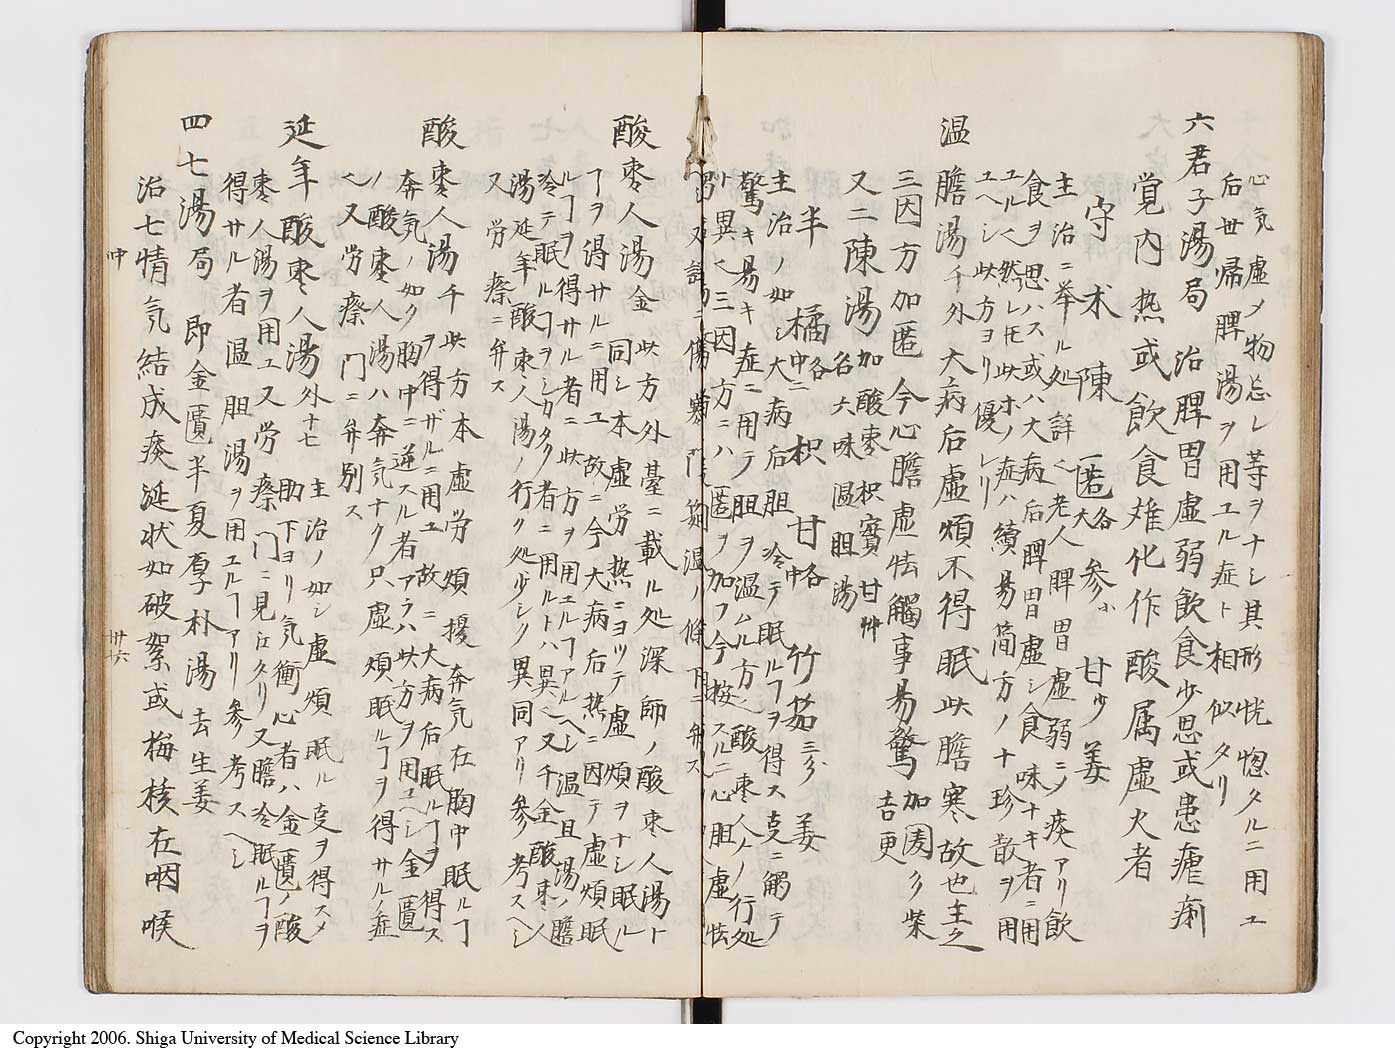 心気虚メ物忘レ等ヲナシ其形恍惚タルニ用ユ
后世帰脾湯ヲ用ユル症ト相似タリ
六君子湯局 治脾胃虚弱飲食少思或患瘧痢
覚内热或飲食难化作酸属虚火者
守 术 陳 匿各大 参小 甘少 姜
主治ニ挙ル処詳ヘ老人脾胃虚弱ニメ痰アリ飲
食ヲ思ハス或ハ大病后脾胃虚シ食味ナキ者ニ用
ユルヘ然レ𪜈此ホノ症ハ續易簡方ノ十珍散ヲ用
ユヘシ此方ヨリ優レリ
温膽湯千外 大病后虚煩不得眠此膽寒故也主之
三因方加匿 今心膽虚怯觸事易驚 加園夕柴吉更
又二陳湯加酸棗枳實甘艸名六味温胆湯
半 橘中各二 枳 甘中各 竹茹三分 姜
主治ノ如シ大病后胆冷テ眠ルヿヲ得ス叓ニ觸テ
驚キ易キ症ニ用テ胆ヲ温ムル方ヘ酸棗人ノ行処
ト異ヘ三因方ニハ匿ヲ加フ今按スルニ心胆虚怯
傷寒門温ノ條下ニ弁ス
酸棗人湯金 同シ本虚労热ニヨツテ虚煩ヲナシ眠ル
此方外臺ニ載ル処深師ノ酸枣人湯ト
ヿヲ得サルニ用ユ故ニ今大病后热ニ因テ虚煩眠
ルヿヲ得サル者ニ此方ヲ用ユルヿアルヘシ温且湯ノ膽
冷テ眠ルヿヲシカタク者ニ用ルトハ異ヘ又千金酸枣人
湯延年酸枣人湯ノ行ク処少シク異同アリ参考スヘシ
又労瘵ニ弁ス
酸棗人湯千 此方本虚労煩擾奔気在胸中眠ルヿ
ヲ得ザルニ用ユ故ニ大病后眠ルヿヲ得ス
奔気ノ如ク胸中ニ逆スル者アラハ此方ヲ用ユヘシ金匱
ノ酸棗人湯ハ奔気ナク只虚煩眠ルヿヲ得サルノ症
ヘ又労瘵門ニ弁别ス
延年酸枣人湯外十七 主治ノ如シ虚煩眠ル叓ヲ得スメ
助下ヨリ気衝心者ハ金匱ノ酸
枣人湯ヲ用ユ又労瘵門ニ見江タリ又膽冷眠ルヿヲ
得サル者温胆湯ヲ用ユルヿアリ参考スヘシ
四七湯局 即金匱半夏厚朴湯去生姜
治七情気結成痰涎状如破絮或梅核在咽喉
中
卅六